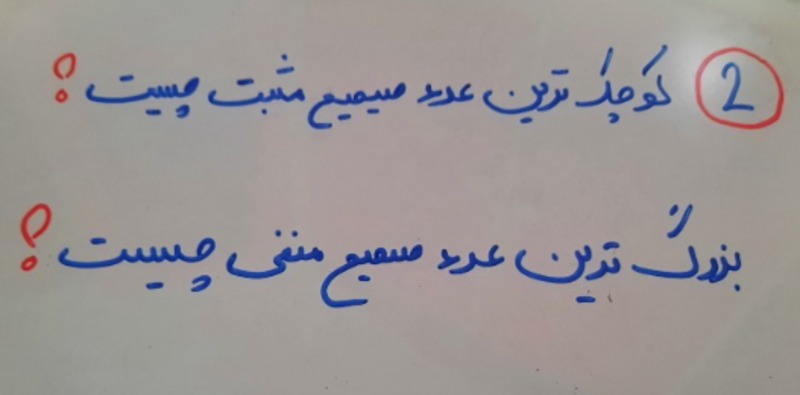 2 کوچک ترین عدد صحیح مثبت چیست ؟
بزرگ ترین عدد صحیح منفی چیست ؟